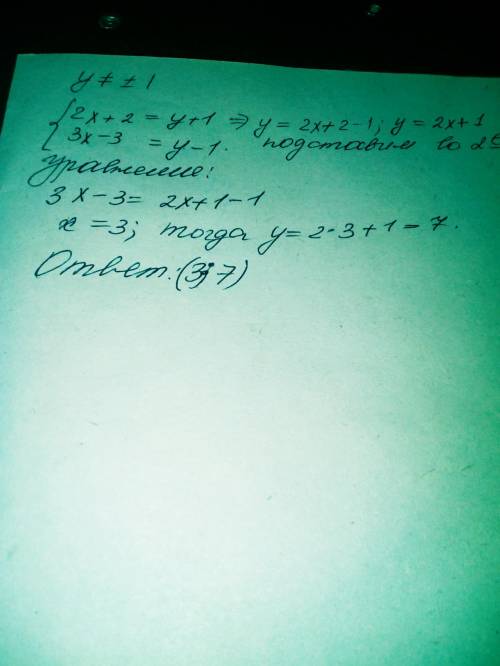 y ≠ ± 1
{2x+2 = y+1 ⇒ y = 2x+2-1; y = 2x+1
3x-3 = y-1. подставим во 2
уравнение:
3x-3 = 2x+1-1
x = 3; тогда y = 2·3+1 = 7.
Ответ: (3; 7)